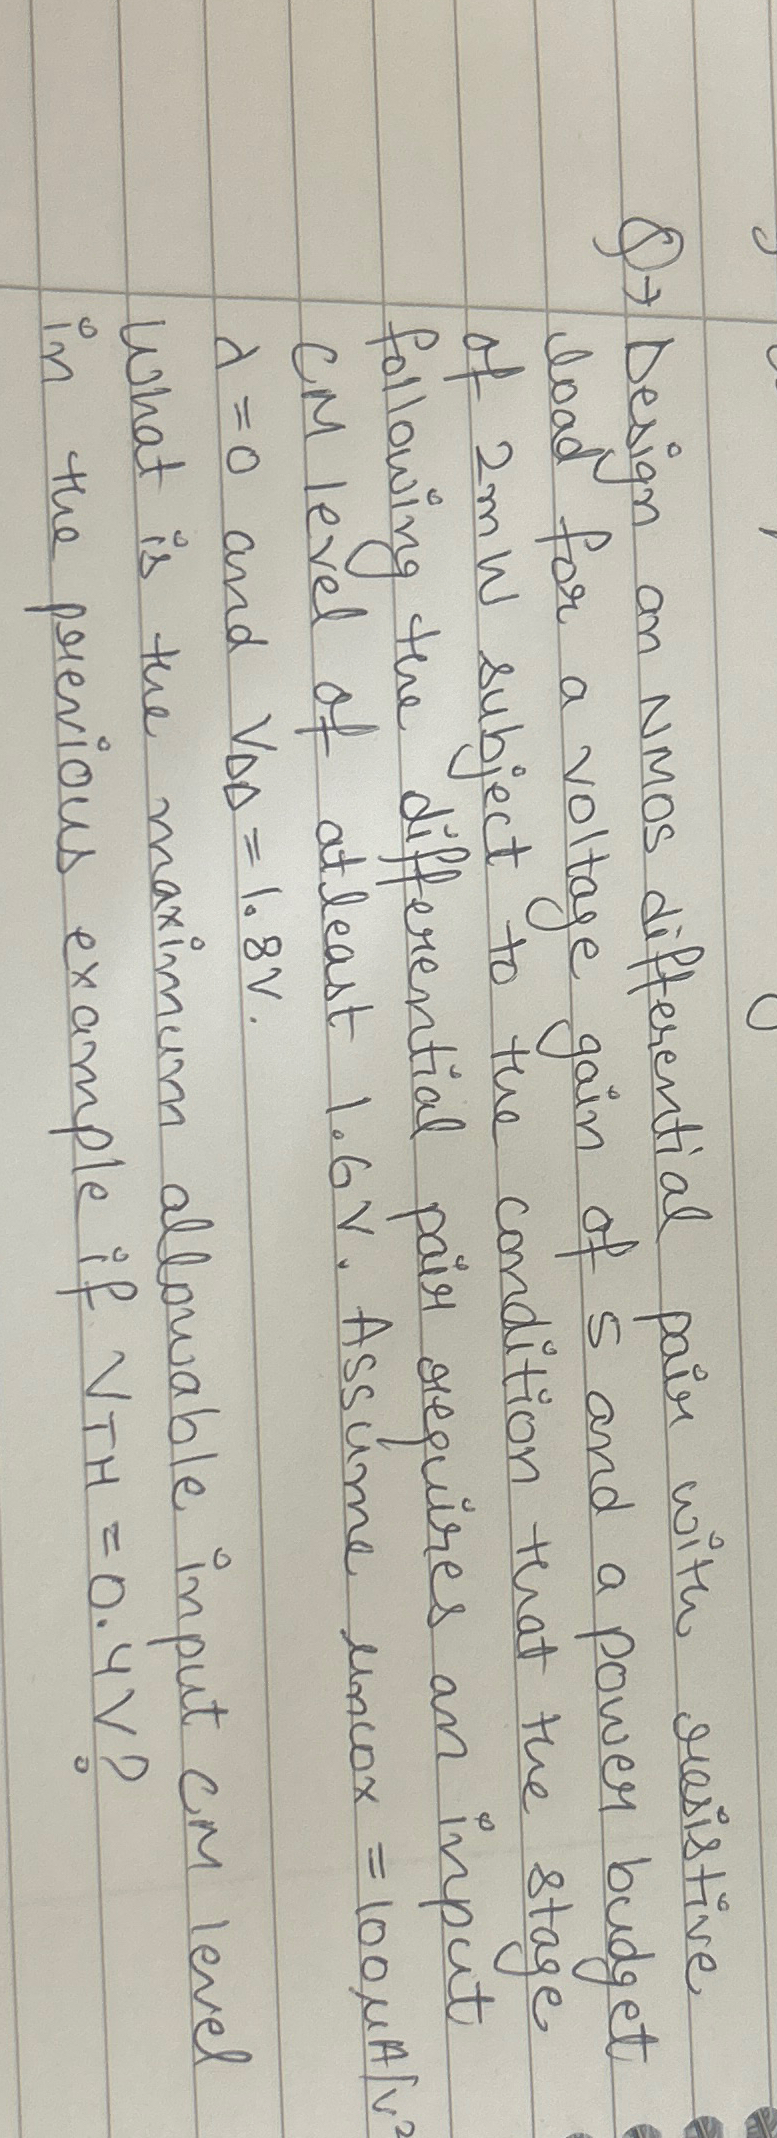 Q→ Design an NMOS differential pair with resistive
load for a voltage gain of 5 and a power budget
of 2mW subject to the condition that the stage
following the differential pair requires an input
CM level of atleast 1.6V. Assume μncox = 100μA/V²
λ=0 and VDD = 1.8V.
What is the maximum allowable input CM level
in the previous example if VTH = 0.4V?